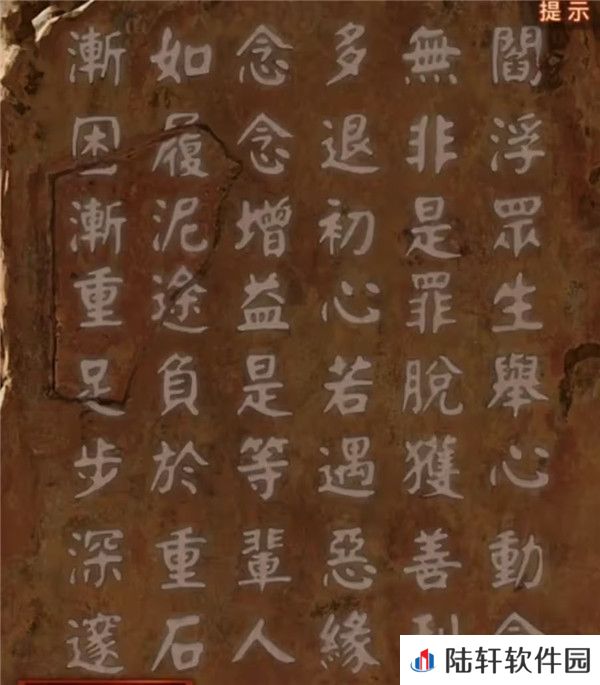 提示
閻浮眾生舉心動
無非是罪脫獲善
多退初心若遇惡緣
念念增益是等輩人
如履泥途負於重石
漸困漸重足步深邃
陆轩软件园